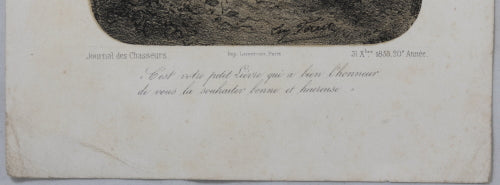 Journal des Chasseurs. Imp. Lemercier, Paris 31 Xbre 1856, 20e Année.
C'est votre petit Lièvre qui a bien l'honneur
de vous la souhaiter bonne et heureuse.